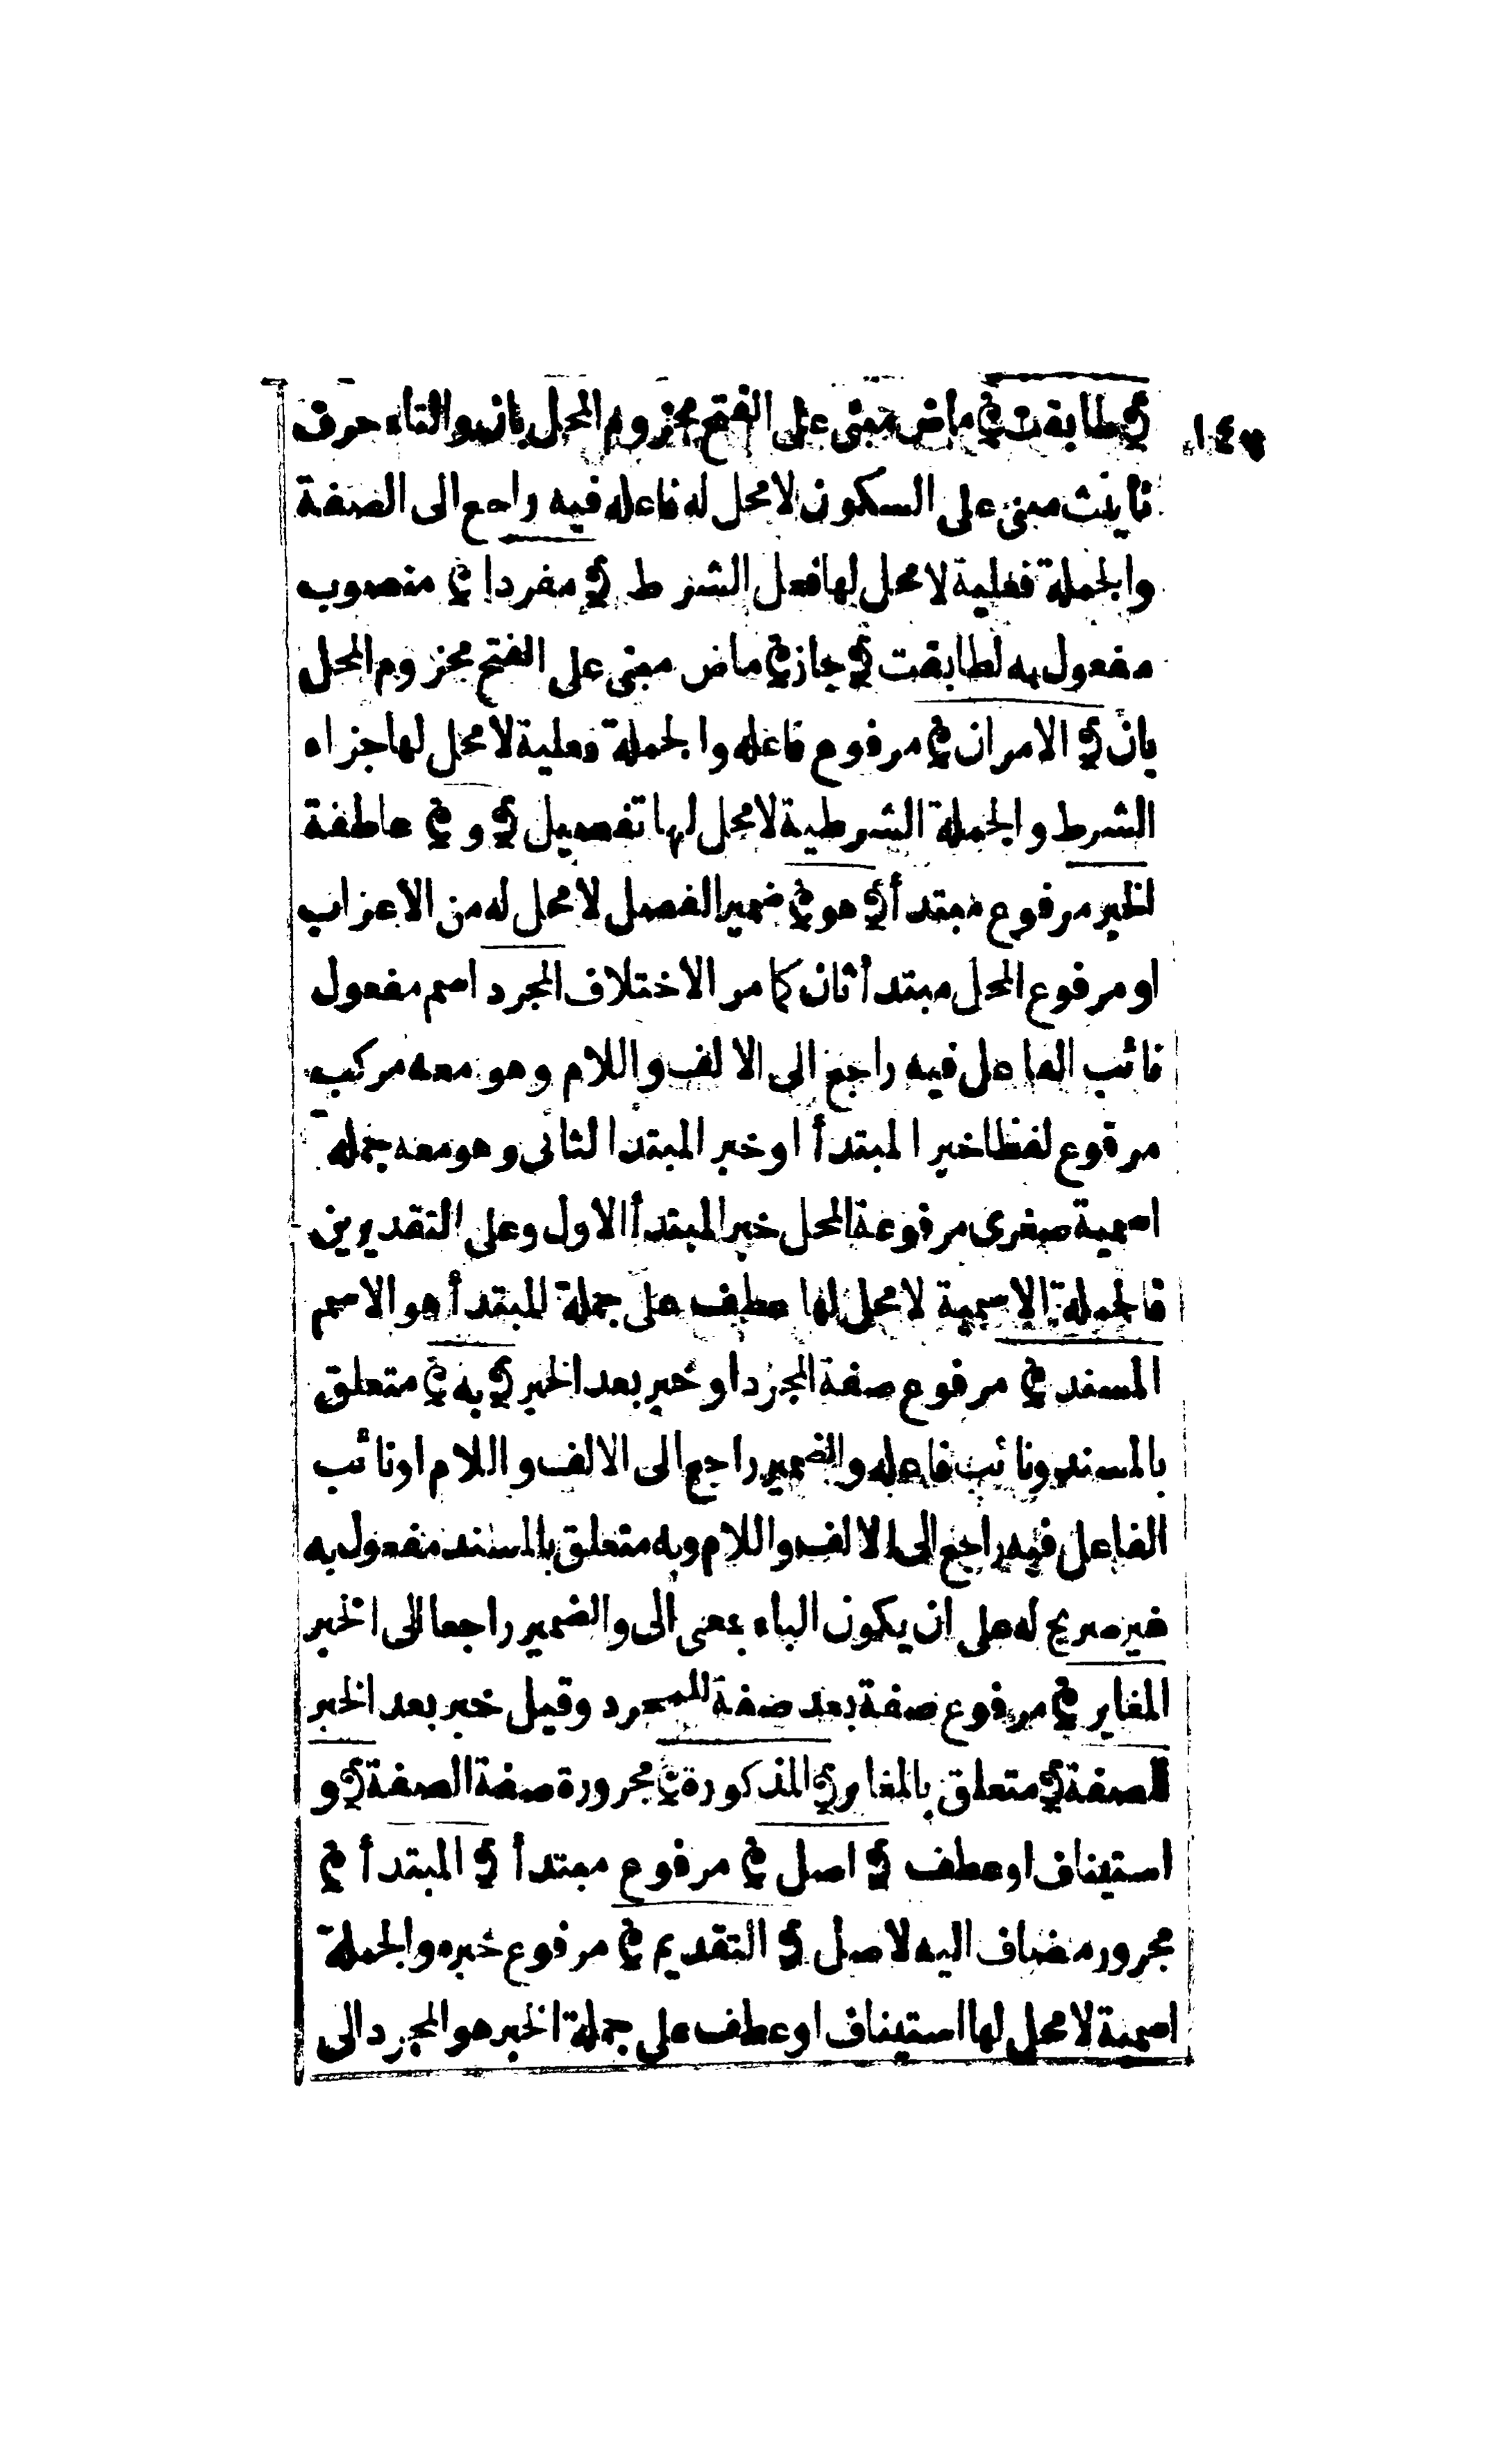 ﴿طابقت﴾ ماض مبنى على الفتح مجزوم المحل بان والتاء حرف
تأنيث مبنى على السكون لا محل له فاعله فيه راجع الى الصفة
والجملة فعلية لا محل لها فعل الشرط ﴿مفردا﴾ منصوب
مفعول به لطابقت ﴿جاز﴾ ماض مبنى على الفتح مجزوم المحل
بان ﴿الامران﴾ مرفوع فاعله والجملة فعلية لا محل لها جزاء
الشرط والجملة الشرطية لا محل لها تفصيل ﴿و﴾ عاطفة
الخبر مرفوع مبتدأ ﴿هو﴾ ضمير الفصل لا محل له من الاعراب
او مرفوع المحل مبتدأ ثان كما مر الاختلاف المجرد اسم مفعول
نائب الفاعل فيه راجع الى الالف واللام وهو معه مركب
مرفوع لفظا خبر المبتدأ او خبر المبتدا الثانى وهو معه جملة
اسمية صغرى مرفوعة المحل خبر المبتدأ الاول وعلى التقديرين
فالجملة الاسمية لا محل لها عطف على جملة المبتدأ هو الاسم
المسند ﴾ مرفوع صفة المجرد او خبر بعد الخبر ﴿به﴾ متعلق
بالمسند ونائب فاعله والضمير راجع الى الالف واللام او نائب
الفاعل فيه راجع الى الالف واللام وبه متعلق بالمسند مفعول به
غير صريح له على ان يكون الباء بمعنى الى والضمير راجعا الى الخبر
المغاير ﴾ مرفوع صفة بعد صفة للمجرد وقيل خبر بعد الخبر
للصفة ﴾ متعلق بالمغاير ﴿المذكورة﴾ مجرورة صفة الصفة ﴿و
استيناف او عطف ﴿اصل﴾ مرفوع مبتدأ ﴿المبتدأ﴾
مجرور مضاف اليه لاصل ﴿التقديم﴾ مرفوع خبره والجملة
اسمية لا محل لها استيناف او عطف على جملة الخبر هو المجرد الى